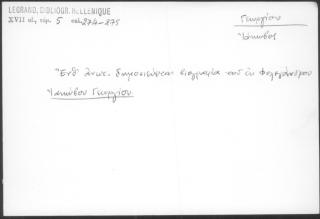 LEGRAND, BIBLIOGR. HELLENIQUE
XVII αι, τόμ. 5 σελ. 274-275
Γεωργίου
Ἰάκωβος
Ἔνθ' ἄνωτ. δημοσιεύεται βιογραφία τοῦ ἐκ
Ἰακώβου Γεωργίου.